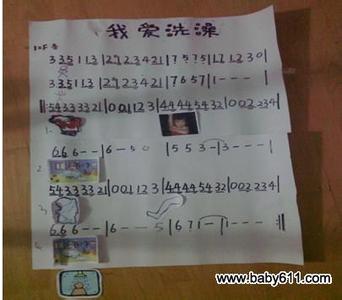 我爱洗澡
1=F
3 335 113 | 212 23421 | 7 5 7 5 | 17 12 3 0 |
3 335 113 | 212 23421 | 7 6 5 7 | 1 - - - |
‖: 5433321 | 001123 | 44445432 | 002234 |
1.
666 - - | 6 - 50 | 553 - | 3 - - - |
2.
54333321 | 001123 | 44445432 | 002234 |
3.
666 - - | 6 - - 5 | 671 - | 1 - - - :‖
4.
www.baby611.com